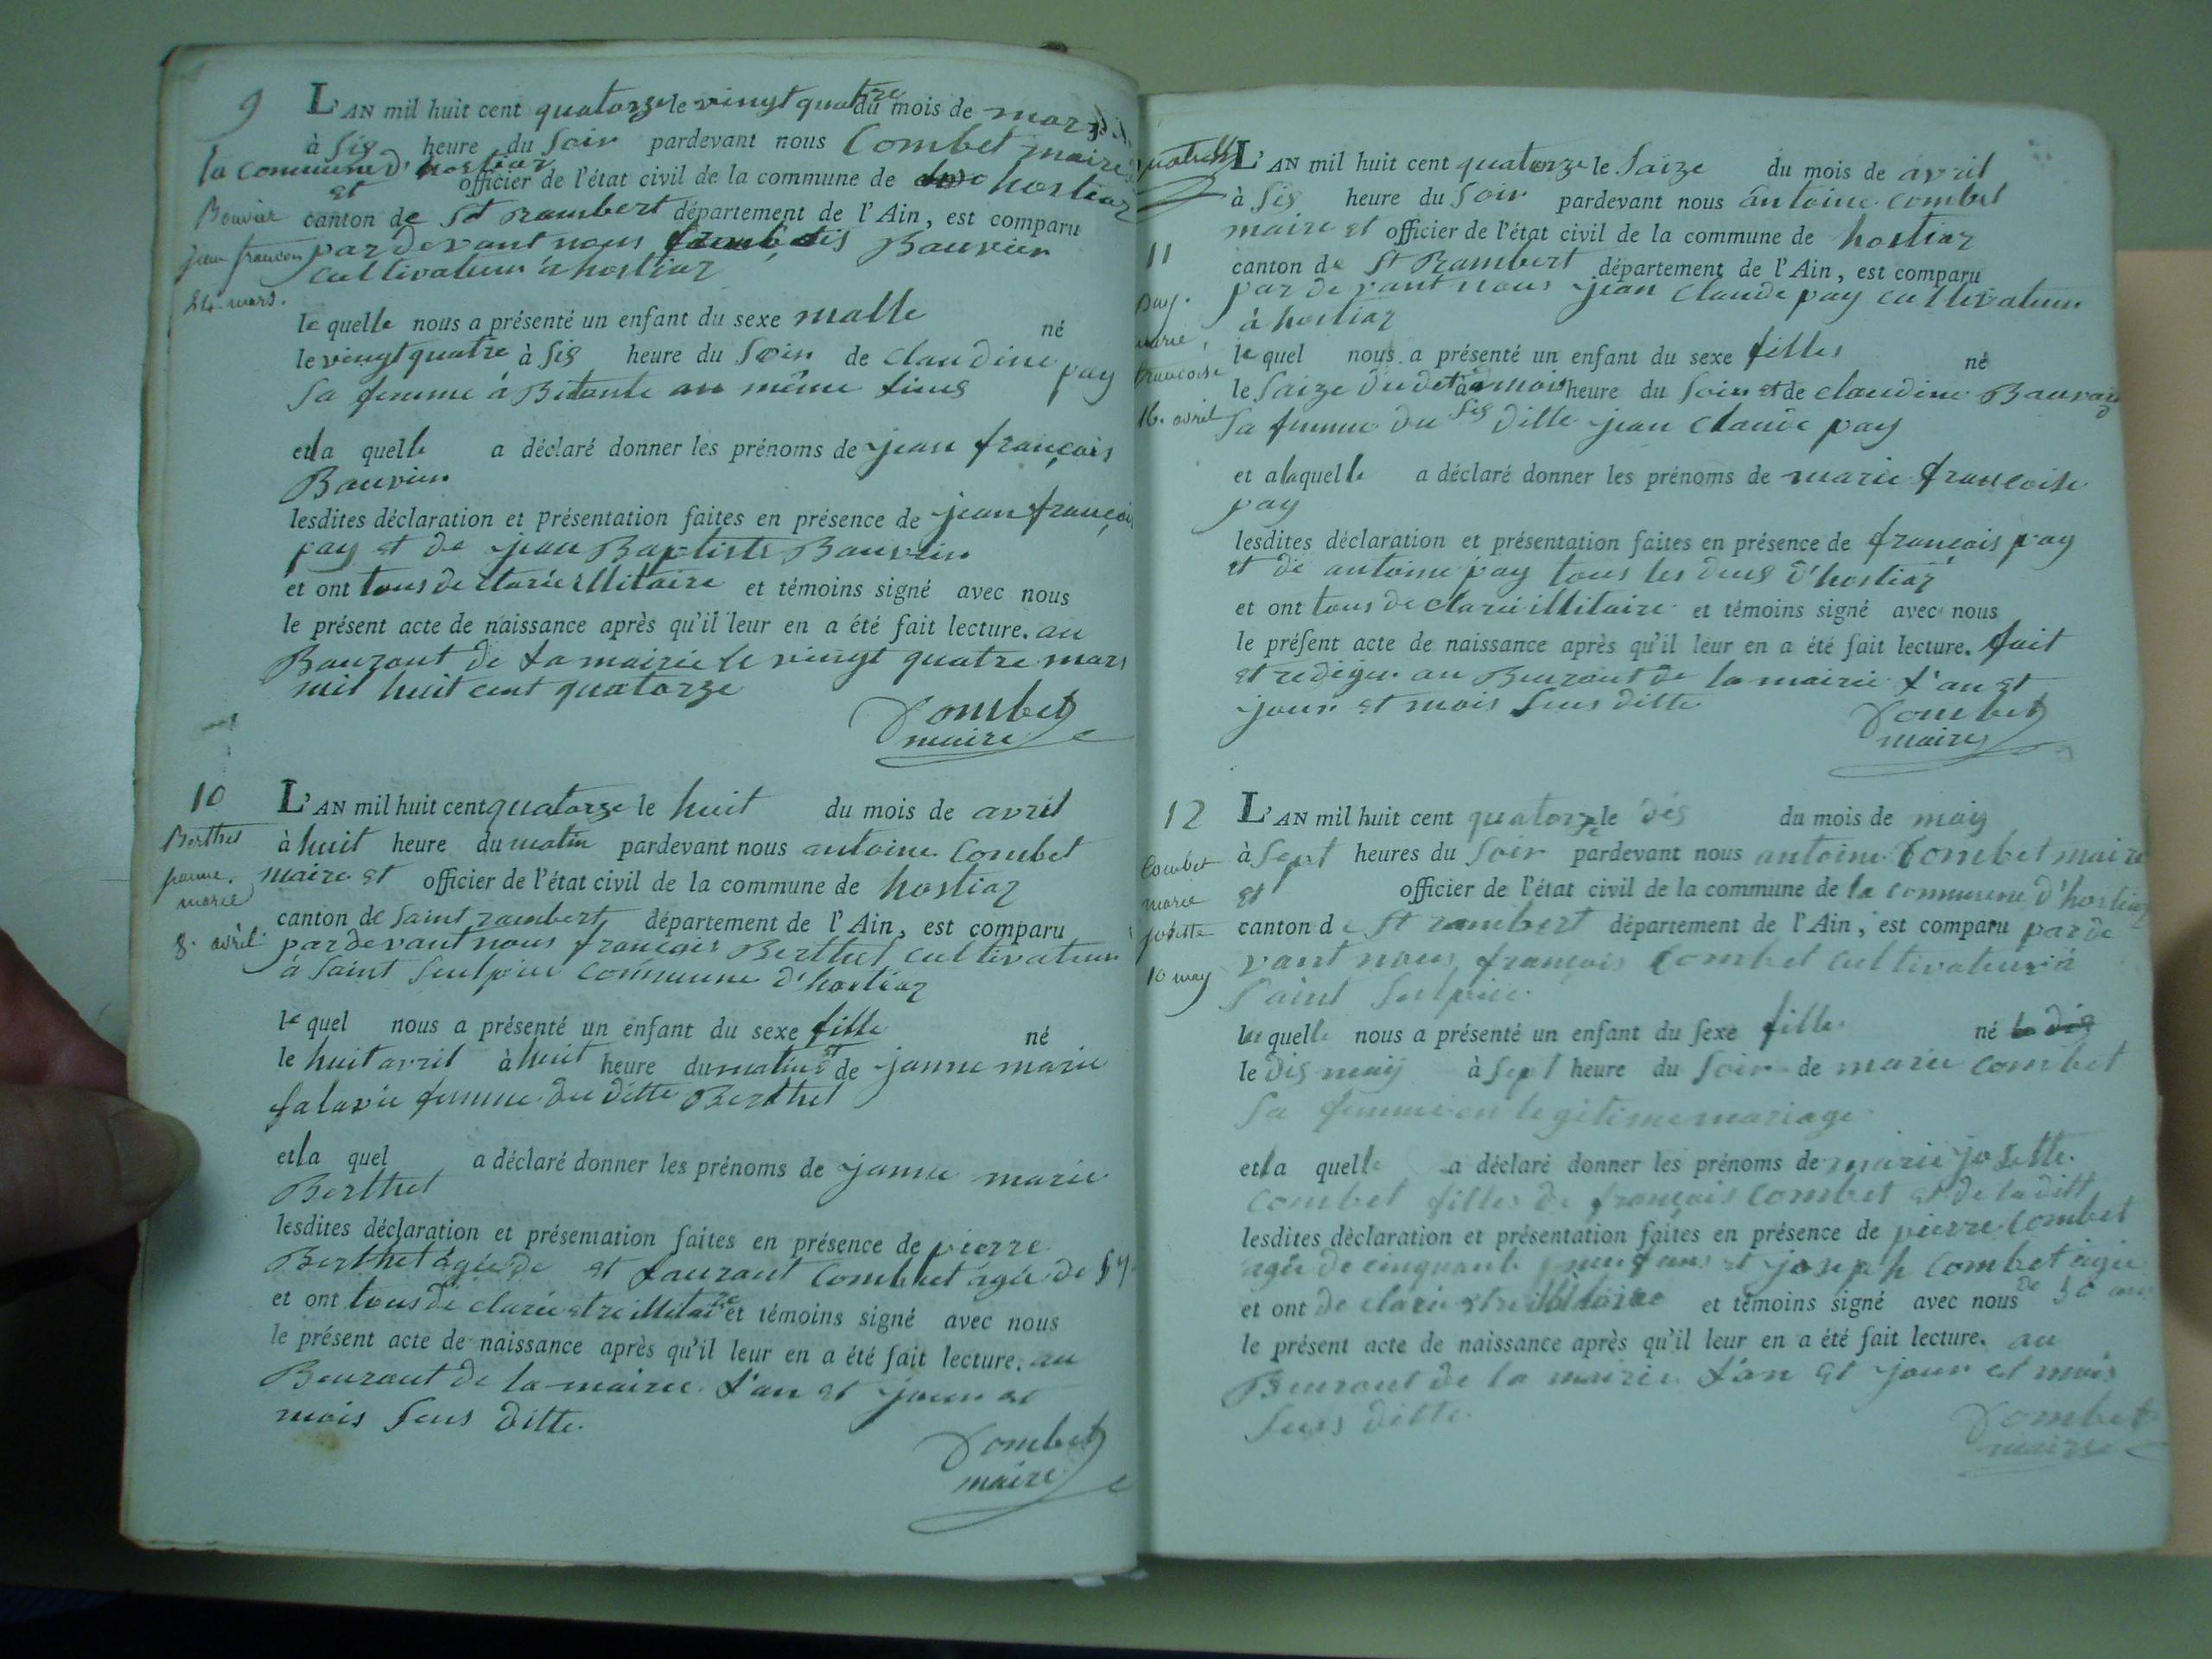 9
la commune d'hostiaz
et
Bouvier
jean francois
24 mars.
L'AN mil huit cent quatorze le vingt quatre du mois de mars
à sis heure du soir pardevant nous Combet maire
officier de l'état civil de la commune de hostiaz
canton de St Rambert département de l'Ain, est comparu
pardevant nous Bauvier
cultivateur à hostiaz
le quelle nous a présenté un enfant du sexe malle né
le vingt quatre à sis heure du soir de claudine pay
sa femme à au même lieus
et la quelle a déclaré donner les prénoms de jean françois
Bauvier
lesdites déclaration et présentation faites en présence de jean françois
pay et de jean Baptiste Bauvier
et ont tous declarée illitaire et témoins signé avec nous
le présent acte de naissance après qu'il leur en a été fait lecture. au
Bauraut de la mairie le vingt quatre mars
mil huit cent quatorze
Combet
maire
10
Berthet
janne.
marie
8. avril
L'AN mil huit cent quatorze le huit du mois de avril
à huit heure du matin pardevant nous antoine Combet
maire et officier de l'état civil de la commune de hostiaz
canton de saint rambert département de l'Ain, est comparu
pardevant nous francois Berthet cultivateur
à saint sulpice commune d'hostiaz
le quel nous a présenté un enfant du sexe fille né
le huit avril à huit heure du matin et de janne marie
falavie femme du ditte Berthet
et la quel a déclaré donner les prénoms de janne marie
Berthet
lesdites déclaration et présentation faites en présence de pierre
Berthet agée de et Laurant Combet agée de
et ont tous de clarée etre illitaire et témoins signé avec nous
le présent acte de naissance après qu'il leur en a été fait lecture. au
Beuraut de la mairie l'an et jour et
mois sus ditte.
Combet
maire
11
pay.
marie,
francoise
16. avril
L'AN mil huit cent quatorze le saize du mois de avril
à sis heure du soir pardevant nous antoine combet
maire et officier de l'état civil de la commune de hostiaz
canton de St Rambert département de l'Ain, est comparu
par devant nous jean claude pay cultivateur
à hostiaz
le quel nous a présenté un enfant du sexe filles né
le saize du det mois à sis heure du soir et de claudine
sa femme du ditte jean claude pay
et a laquelle a déclaré donner les prénoms de marie francoise
pay
lesdites déclaration et présentation faites en présence de francois pay
et de antoine pay tous les deus d'hostiaz
et ont tous de clarée illitaire et témoins signé avec nous
le présent acte de naissance après qu'il leur en a été fait lecture. fait
et redigée au Beuraut de la mairie l'an et
jour et mois sus ditte
Combet
maire
12
Combet
marie
josette
10 may
L'AN mil huit cent quatorze le dis du mois de may
à sept heures du soir pardevant nous antoine Combet maire
et officier de l'état civil de la commune de la commune d'hostiaz
canton de St rambert département de l'Ain, est comparu parde
vant nous françois Combet cultivateur à
saint sulpice.
le quelle nous a présenté un enfant du sexe fille né
le dis may à sept heure du soir de marie combet
sa femme en legitime mariage.
et la quelle a déclaré donner les prénoms de marie josette.
combet filles de françois combet et de la ditt
lesdites déclaration et présentation faites en présence de pierre combet
agée de cinquante neuf ans et joseph combet agée
et ont de clarée etre illitaire et témoins signé avec nous de 50 ans
le présent acte de naissance après qu'il leur en a été fait lecture. au
Beuraut de la mairie l'an et jour et mois
sus ditte.
Combet
maire